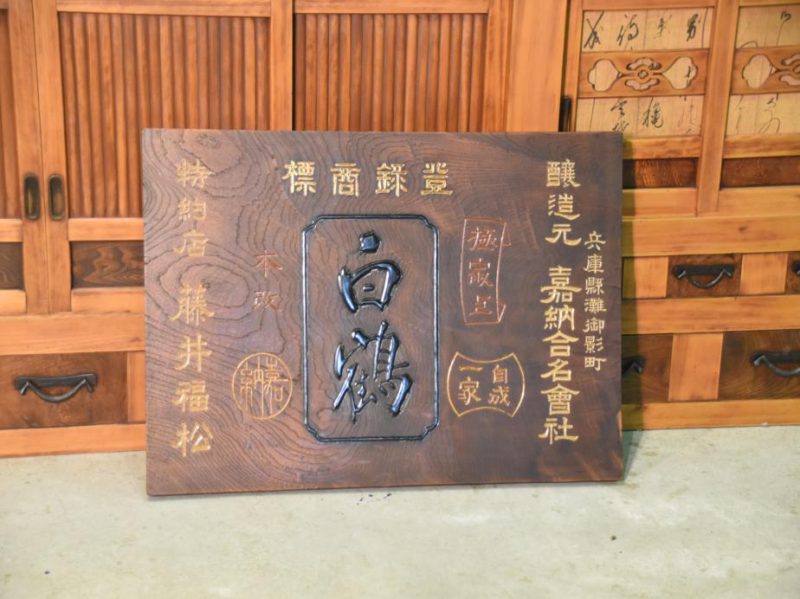 登錄商標
兵庫縣灘御影町
釀造元 嘉納合名會社
極㝡上
自成一家
白鶴
本改
嘉納
特約店 藤井福松